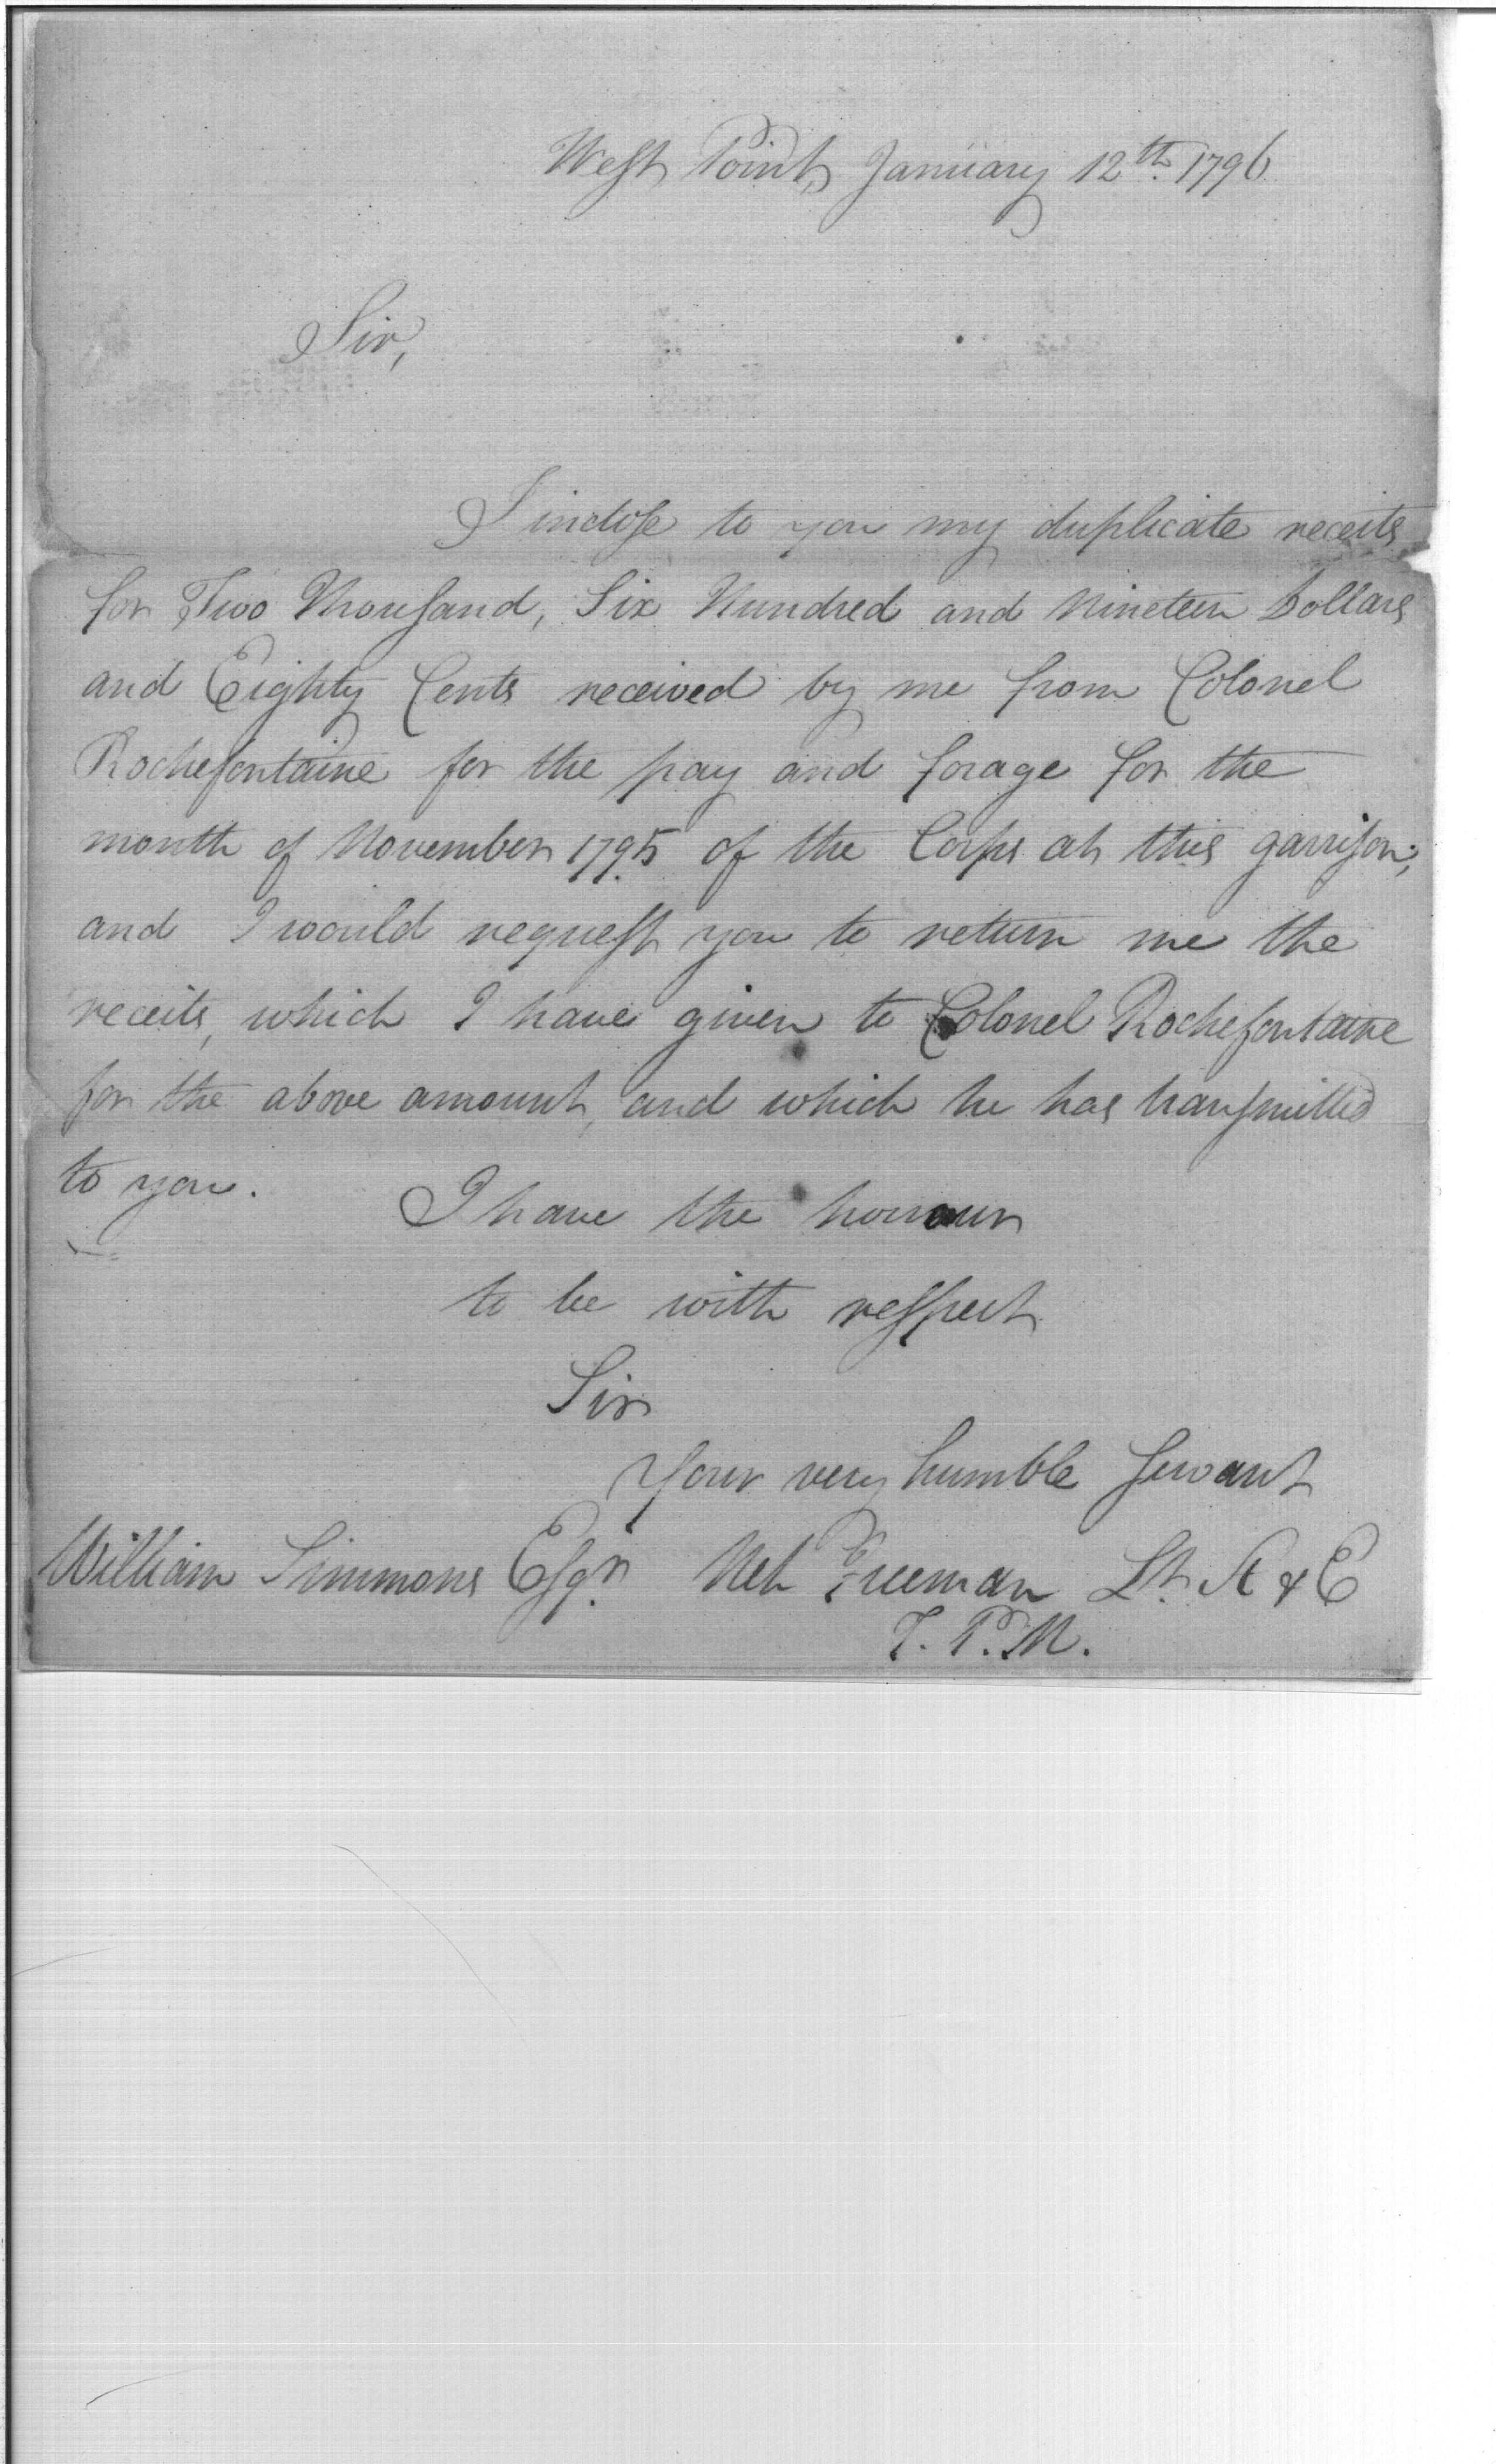 West Point, January 12th. 1796
Sir,
I inclose to you my duplicate receits
for Two Thousand, Six Hundred and Nineteen Dollars
and Eighty Cents received by me from Colonel
Rochefontaine for the pay and forage for the
month of November 1795 of the Corps at this garrison;
and I would request you to return me the
receits, which I have given to Colonel Rochefontaine
for the above amount, and which he has transmitted
to you.
I have the honour
to be with respect
Sir
Your very humble Servant
William Simmons Esqr. Neh Freeman Lt. A & E
T. P. M.